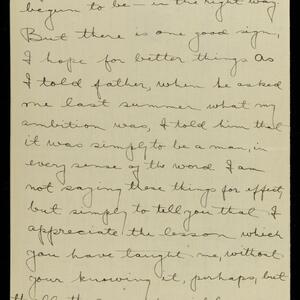 begun to be — in the right way.
But there is one good sign,
I hope for better things as
I told father, when he asked
me last summer what my
ambition was, I told him that
it was simply to be a man, in
every sense of the word I am
not saying these things for effect,
but simply to tell you that I
appreciate the lesson which
you have taught me, without
your knowing it, perhaps, but